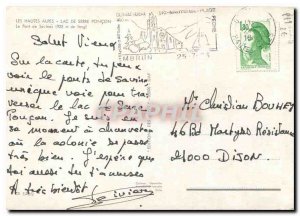 LES HAUTES ALPES - LAC DE SERRE PONÇON
Le Pont de Savines (924 m de long)
EMBRUN
Salut Vieux
Sur la carte, tu peux
voir le ponts de Savine
unique voie pour tra
verser le lac de Serre
Ponçon. Je suis en
ce moment à
ou la colonie se passe
très bien. J'espère que
toi aussi tu t'amuses
A très bientôt
Mr Christian BOUHEY
46 Bd Martyrs Résistance
21000 DIJON.